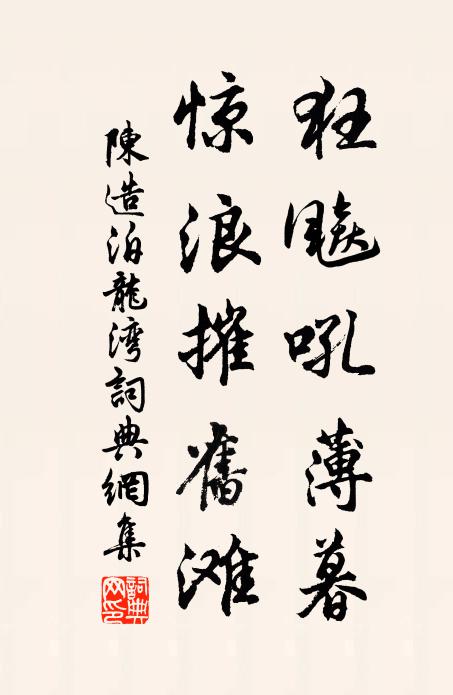 狂飈吼薄暮
惊浪摧舊滩
陳造泊龍湾詞典網集
詞典网印